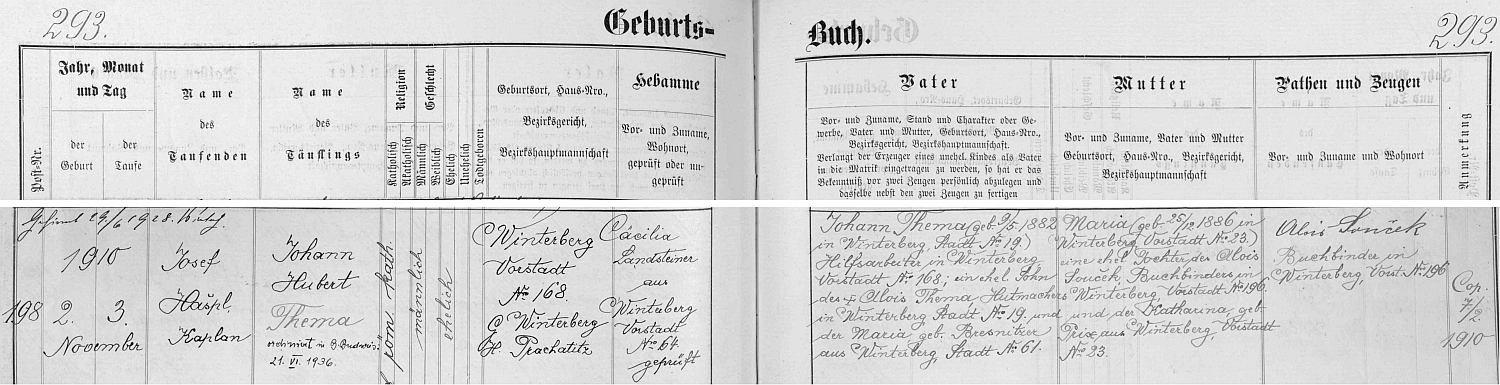 293.
Geburts-
Jahr, Monat
und Tag
Post-Nr.
der
Geburt
der
Taufe
Name
des
Taufenden
Name
des
Täuflings
Religion
Katholisch
Akatholisch
Geschlecht
Männlich
Weiblich
Ehelich
Unehelich
Todtgeboren
Geburtsort, Haus-Nro.,
Bezirksgericht,
Bezirkshauptmannschaft
Hebamme
Vor- und Zuname,
Wohnort,
geprüft oder un-
geprüft
198
1910
2. 3.
November
Josef
Hašpl.
Kaplan
Johann
Hubert
Thema
ordiniert in B. Budweis
21. VI. 1936.
rom. kath.
männlich
ehelich
Winterberg
Vorstadt
No 168.
G. Winterberg
H. Prachatitz
Cäcilia
Landsteiner
aus
Winterberg
Vorstadt
No 64
geprüft
Buch.
293.
Vater
Vor- und Zuname, Stand und Charakter oder Ge-
werbe, Vater und Mutter, Geburtsort, Haus-Nro.,
Bezirksgericht, Bezirkshauptmannschaft.
Verlangt der Erzeuger eines unehel. Kindes als Vater
in die Matrik eingetragen zu werden, so hat er das
Bekenntniß vor zwei Zeugen persönlich abzulegen und
dasselbe nebst den zwei Zeugen zu fertigen
Mutter
Vor- und Zuname, Vater und Mutter
Geburtsort, Haus-Nro., Bezirksgericht,
Bezirkshauptmannschaft
Pathen und Zeugen
Vor- und Zuname und Wohnort
Anmerkung
Johann Thema (geb. 9/5. 1882
in Winterberg, Stadt No 19.)
Hilfsarbeiter in Winterberg
Vorstadt No 168; ein ehel. Sohn
des † Alois Thema Hutmachers
in Winterberg Stadt No 19. und
der Maria, geb. Bresnitzer
aus Winterberg, Stadt No 61.
Maria (geb. 25/12 1886 in
Winterberg, Vorstadt No 23.)
eine ehel. Tochter des Alois
Souček, Buchbinders in
Winterberg, Vorstadt No 196
und der Katharina, geb.
aus Winterberg, Vorstadt
No 23.
Alois Souček
Buchbinder in
Winterberg, Vorst. No 196
Cop.
7/2.
1910